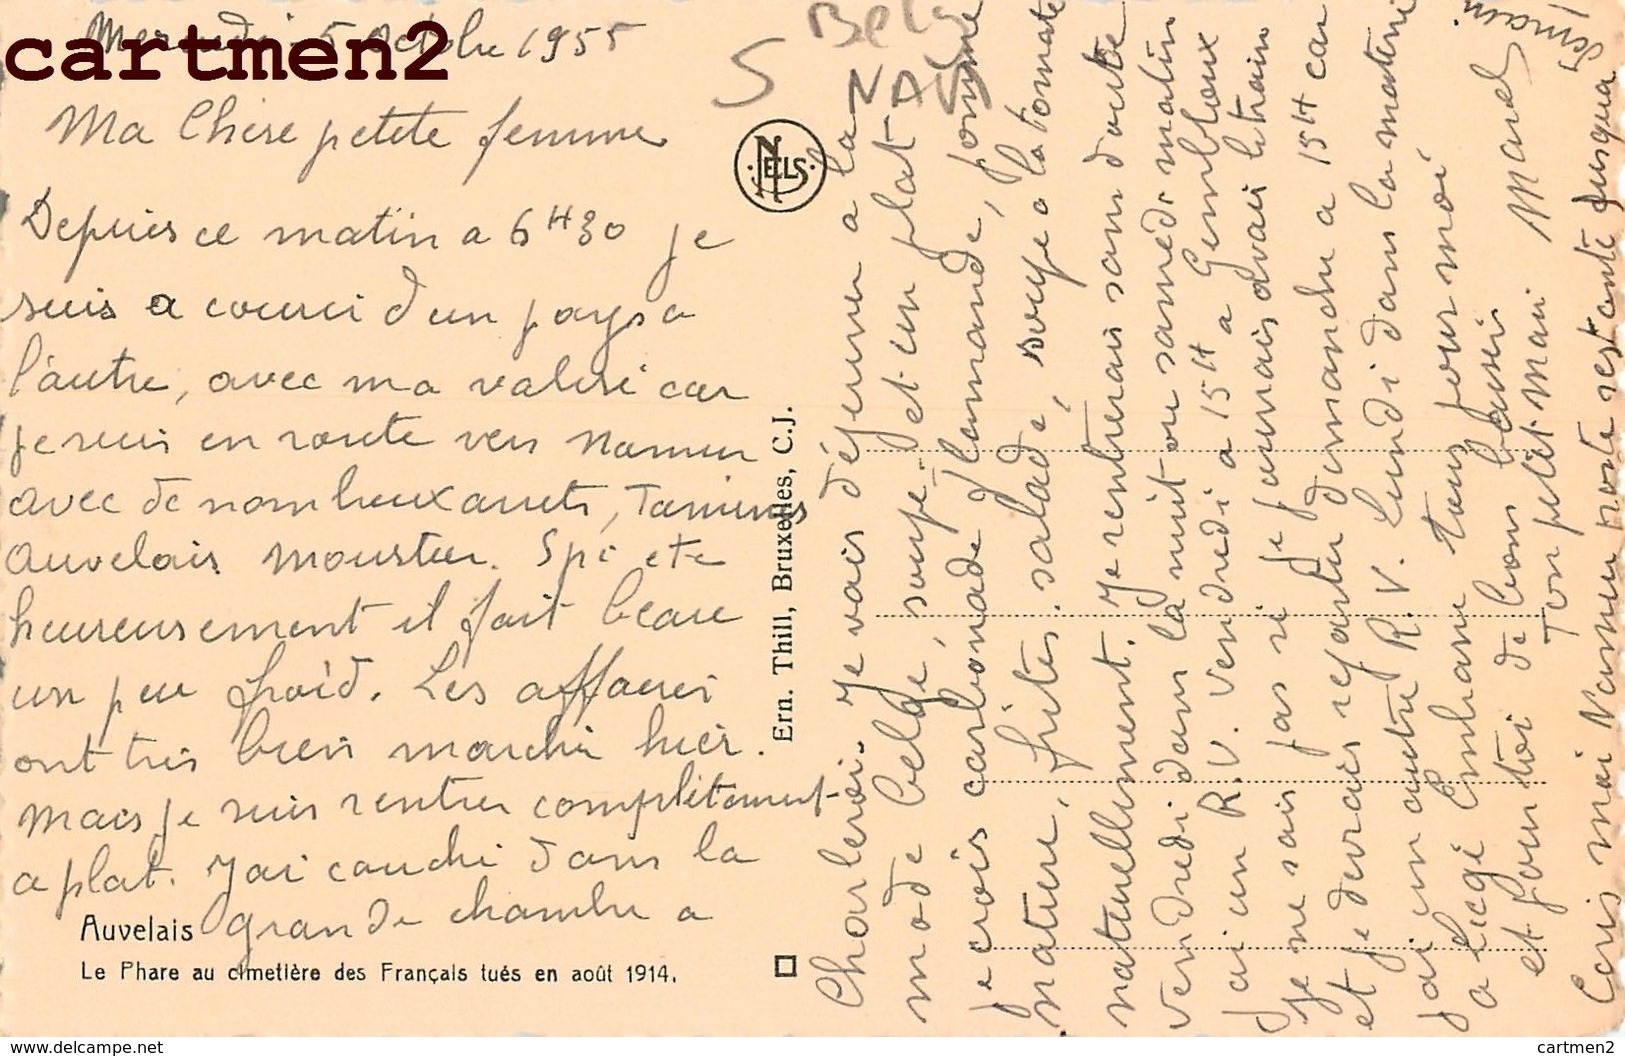 cartmen2
Mercredi 5 octobre 1955
Ma Chère petite femme
Depuis ce matin a 6H30 je
suis a courir d'un pays a
l'autre, avec ma valise car
je suis en route vers Namur
avec de nombreux arrets, Tamines
Auvelais Moustier. Spi etc
heureusement il fait beau
un peu froid. Les affaires
ont très bien marché hier.
Mais je suis rentrer complètement
a plat. J'ai couché dans la
grande chambre a
Auvelais
Le Phare au cimetière des Français tués en août 1914.
NELS
Ern. Thill, Bruxelles, C.J.
S
Belg
NAM
Charleroi. Je vais déjeuner a la
mode belge, soupe, et un plat
je crois carbonade flamande, pomme
nature, frites, salade, soupe a la tomate
naturellement. Je rentrerais sans doute
vendredi dans la nuit ou samedi matin
j'ai un R.V. vendredi a 15H a Gembloux
Je ne sais pas si je pourrais avoir le train
et je devrais repartir dimanche a 15H car
j'ai un autre R.V. Lundi dans la matiné
a Liegé Embrasse tous pour moi
et pour toi de bons baisers
Ton petit mari Marcel
Ecris moi Namur poste restante jusqua
demain
delcampe.net
cartmen2